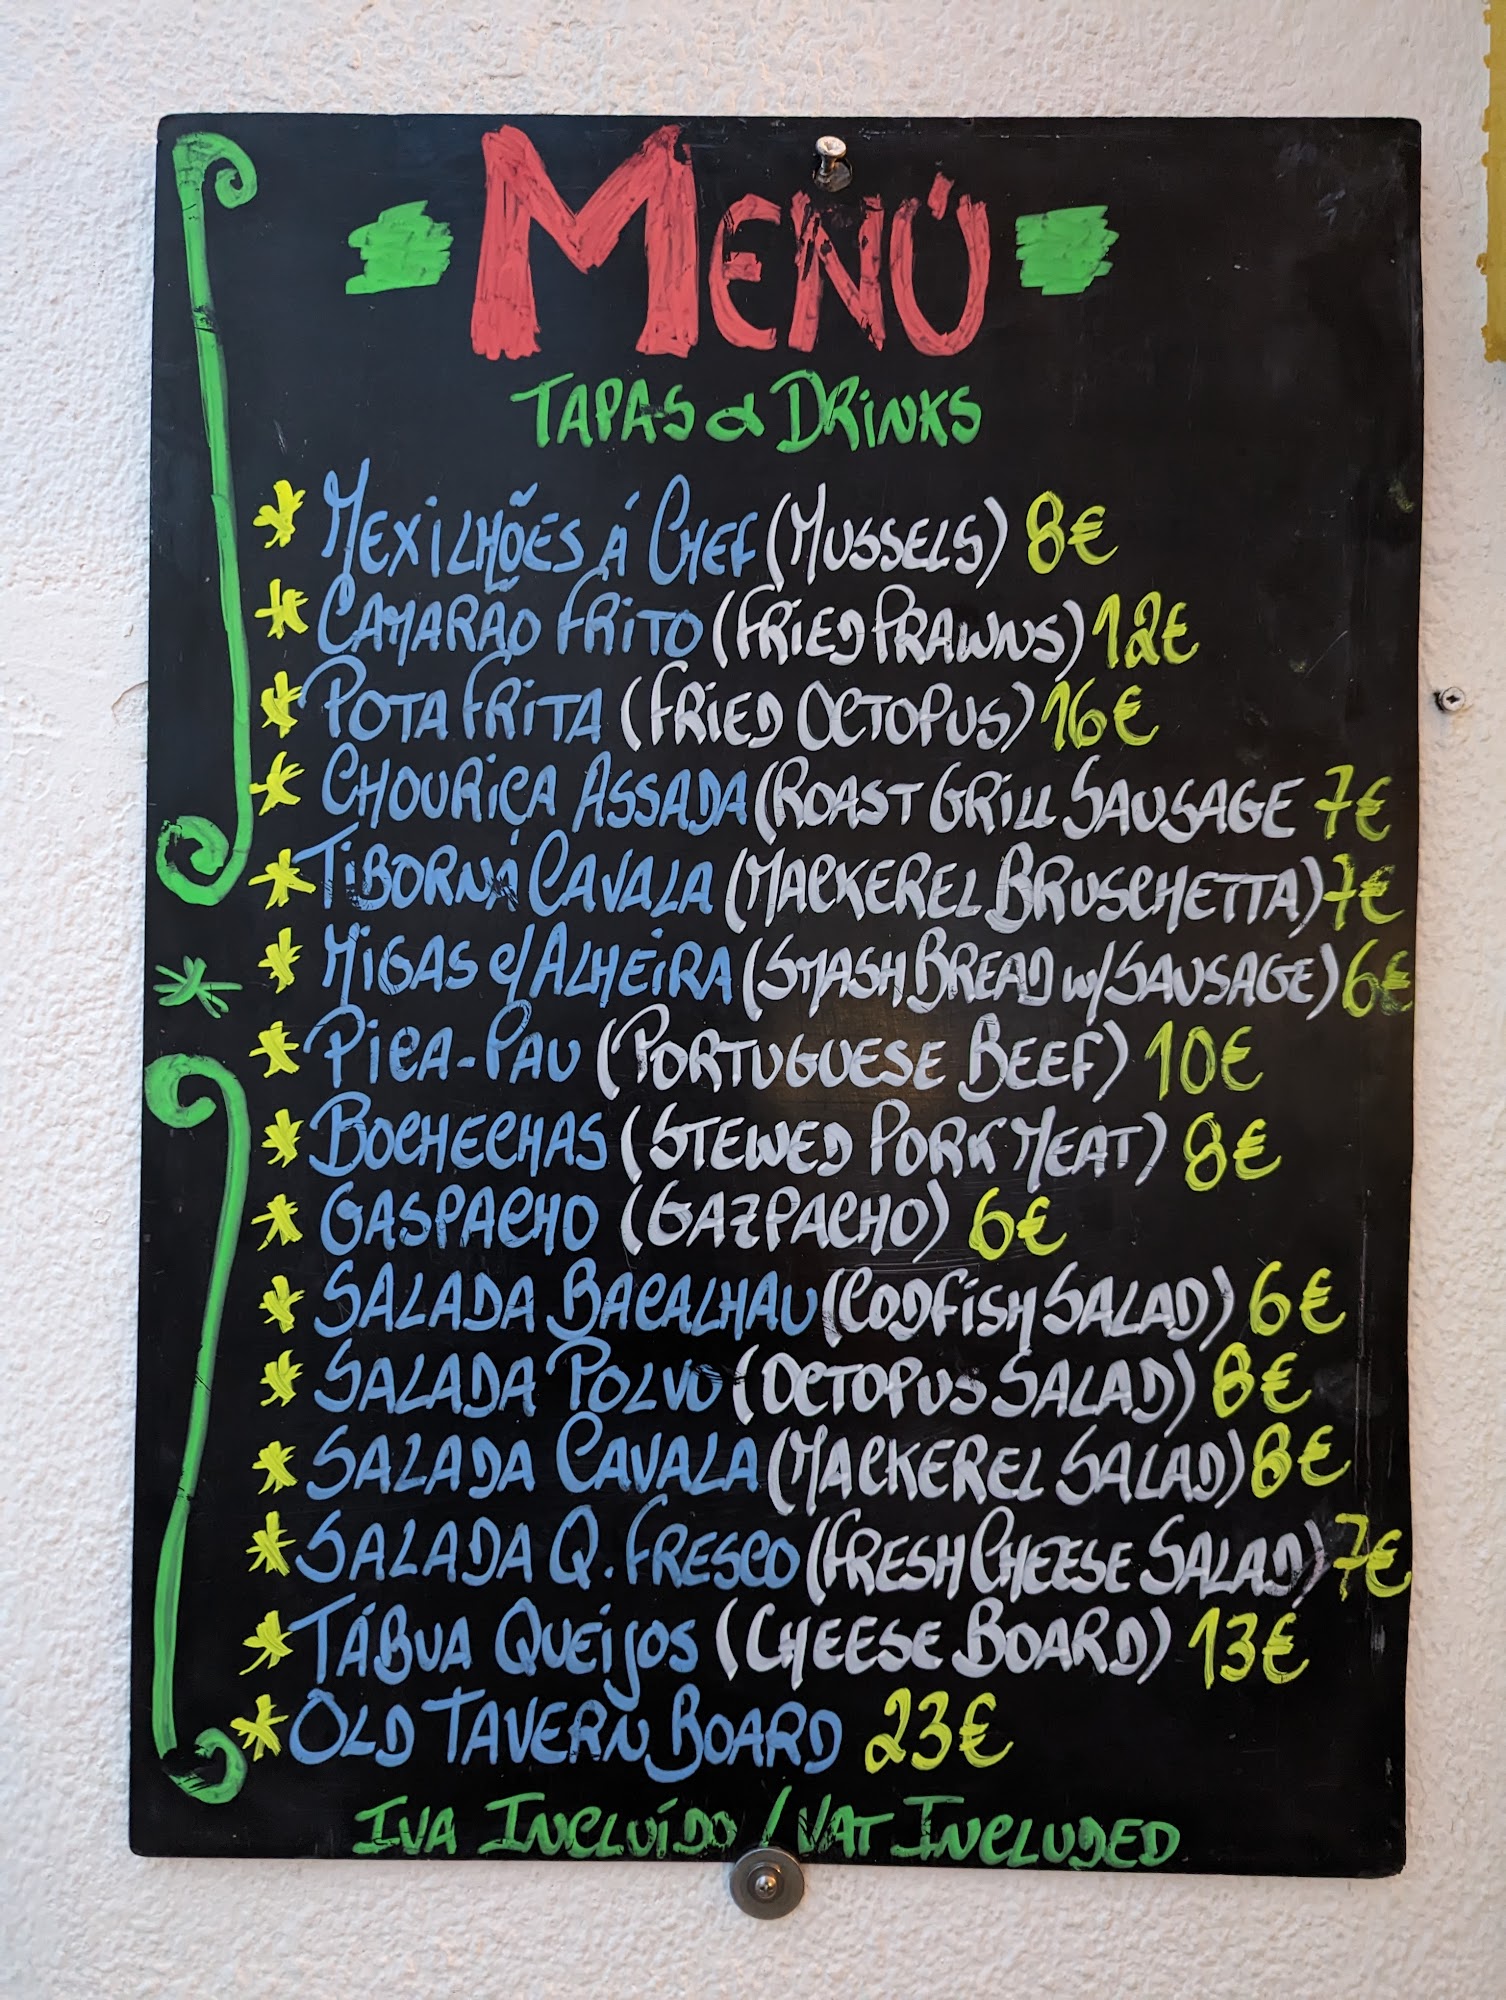 MENÚ
TAPAS & DRINKS
MEXILHÕES Á CHEF (MUSSELS) 8€
CAMARÃO FRITO (FRIED PRAWNS) 12€
POTA FRITA (FRIED OCTOPUS) 16€
CHOURIÇA ASSADA (ROAST GRILL SAUSAGE 7€
TIBORNA CAVALA (MACKEREL BRUSCHETTA) 7€
MIGAS C/ ALHEIRA (SMASH BREAD W/ SAUSAGE) 6€
PICA-PAU (PORTUGUESE BEEF) 10€
BOCHECHAS (STEWED PORK MEAT) 8€
GASPACHO (GAZPACHO) 6€
SALADA BACALHAU (CODFISH SALAD) 6€
SALADA POLVO (OCTOPUS SALAD) 8€
SALADA CAVALA (MACKEREL SALAD) 8€
SALADA Q. FRESCO (FRESH CHEESE SALAD) 7€
TÁBUA QUEIJOS (CHEESE BOARD) 13€
OLD TAVERN BOARD 23€
IVA INCLUÍDO / VAT INCLUDED